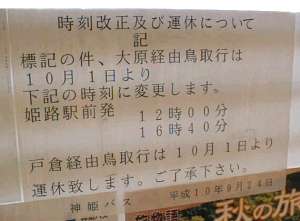 時刻改正及び運休について
記
標記の件、大原経由鳥取行は
10月1日より
下記の時刻に変更します。
姫路駅前発 12時00分
16時40分
戸倉経由鳥取行は10月1日より
運休致します。ご了承下さい。
神姫バス 平成10年9月24日
秋の旅